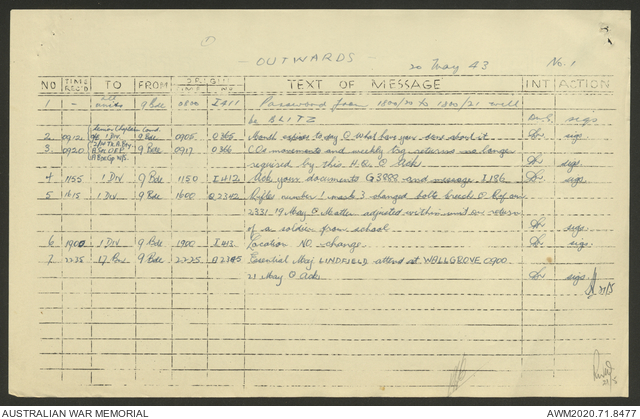 OUTWARDS 20 May 43 No. 1
NO TIME REC'D TO FROM ORIGIN TIME NO. TEXT OF MESSAGE INT ACTION
1 - all units 9 Bde 0800 I411 Password from 1800/20 to 1800/21 will
be BLITZ sigs
2 0912 1 Div 9 Bde 0905 O365 sigs
3 0920 9 Bde 0917 O366 movements and weekly returns no longer
required by this H.Q. O Ack sigs
4 1155 1 Div 9 Bde 1150 I412 Ack your documents G3888 and message I186 sigs
5 1615 1 Div 9 Bde 1600 O2342 Rifles number 1 mark 3 changed bolt breech O Ref our
2331 19 May O Matter adjusted within unit on return
of a soldier from school sigs
6 1900 1 Div 9 Bde 1900 I413 Location NO change sigs.
7 2235 9 Bde 2225 O2345 Essential Maj LINDFIELD attend at WALLGROVE 0900
21 May O Ack sigs
21/5
21/5
AUSTRALIAN WAR MEMORIAL AWM2020.71.8477